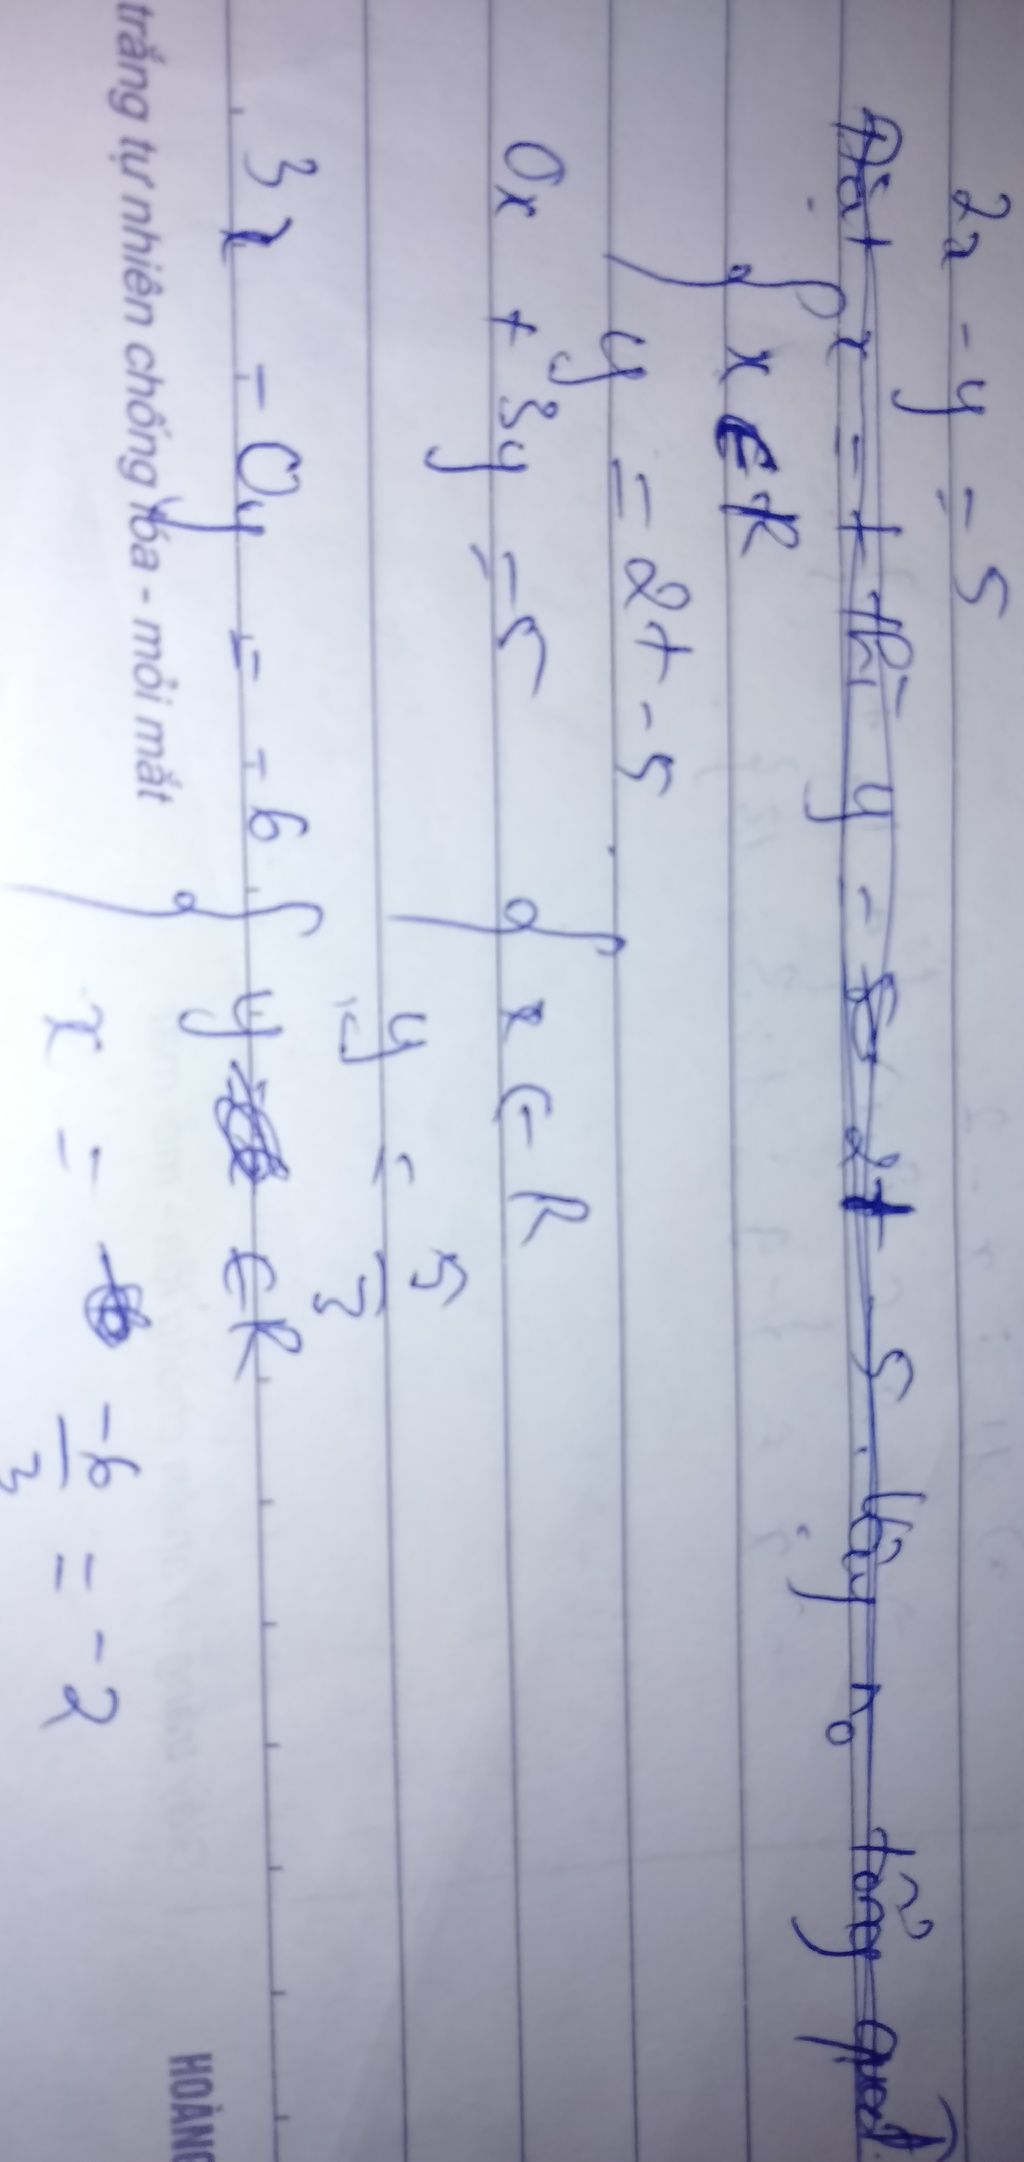 2x - y = 5
Đặt x = t thì y = 2t - 5. Vậy no tổng quát
{ x ∈ R
y = 2t - 5
0x + 3y = 5 { x ∈ R
y = 5/3
3x - 0y = -6 { y ∈ R
x = -6/3 = -2
trắng tự nhiên chống lóa - mỏi mắt
HOÀNG